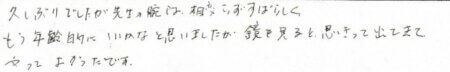 久しぶりでしたが先生の腕は、相変らずすばらしく
もう年齢的に いいかなと思いましたが 鏡を見ると、思いきって出てきて
やって よかったです。